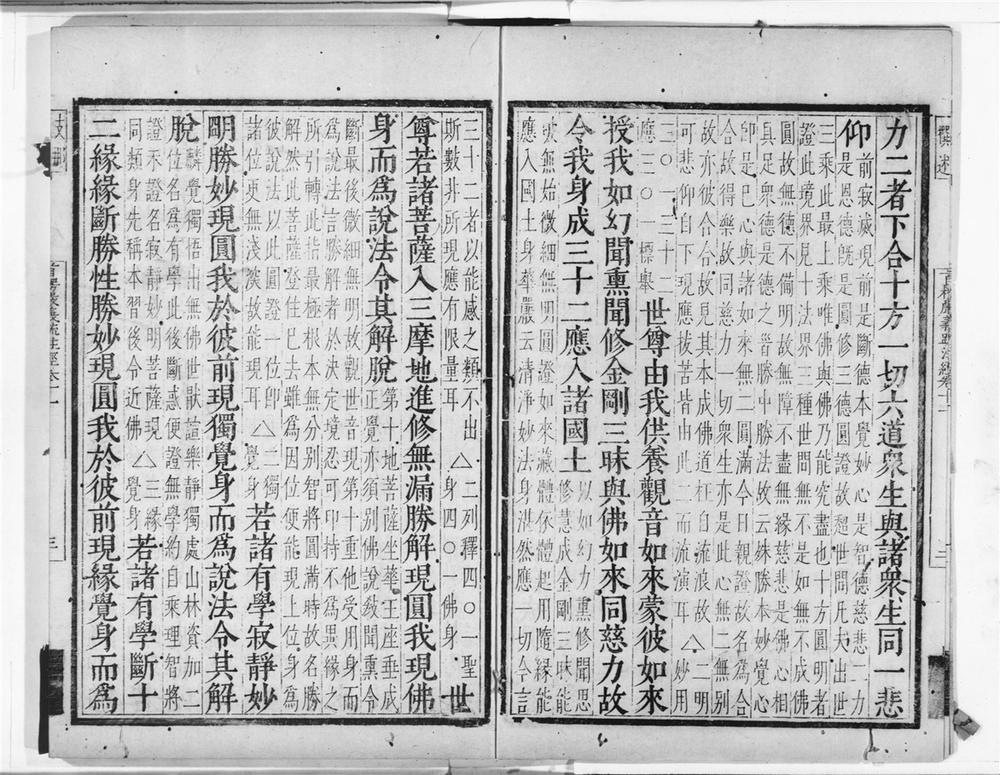 力二者下合十方一切六道衆生與諸衆生同一悲
仰
前寂滅現前是斷德本覺妙心是智德慈悲二力
是恩德旣是圓修三德圓證故超世間凡夫出世
三乘此最上乘唯佛與佛乃能究盡也十方圓明者
證此境界見十法界三種世間無不是如無不成佛
圓故無德不備明故無障不盡無緣慈悲是佛心相
真足衆德是自下勝中勝法故云殊勝本妙覺心
即是已心與諸如來無二圓滿今日親證故名爲合
合故得樂故同慈力一切衆生亦是此心無二無別
故亦彼合合故見其本成佛道枉自流浪故△二明
可悲仰自下現應拔苦皆由此二而流演耳△妙用
三〇一三十二
應三〇一標舉
世尊由我供養觀音如來蒙彼如來
授我如幻聞熏聞修金剛三昧與佛如來同慈力故
令我身成三十二應入諸國土
以如幻力熏修聞思
修慧成金剛三昧能
破無始微細無明圓證如來藏體依體起用隨緣能
應入國土身華嚴云清淨妙法身湛然應一切今言
三十二者以能感之類不出△二列釋四〇一聖
斯數非所現應有限量耳△身四〇一佛身
世
尊若諸菩薩入三摩地進修無漏勝解現圓我現佛
身而爲說法令其解脫
第十地菩薩坐華王座垂成
正覺亦須別佛說教聞熏令
斷最後微細無明故觀世音現第十重他受用身而
爲說法言勝解者於決定境忍可印持不爲異緣之
所引轉此指最極根本無分別智將圓滿時故名勝
解然此菩薩登住已去雖爲因位便能現上位身爲
彼說法以此圓證一位位即△二獨
諸位更無淺深故能現耳△覺身
若諸有學寂靜妙
明勝妙現圓我於彼前現獨覺身而爲說法令其解
脫
麟覺獨悟出無佛世猒諠樂靜獨處山林資加二
位名爲有學此後斷惑便證無學約自乘理智將
證示證名寂靜妙明菩薩現△三緣
同類身先稱本習後令近佛△覺身
若諸有學斷十
二緣緣斷勝性勝妙現圓我於彼前現緣覺身而爲